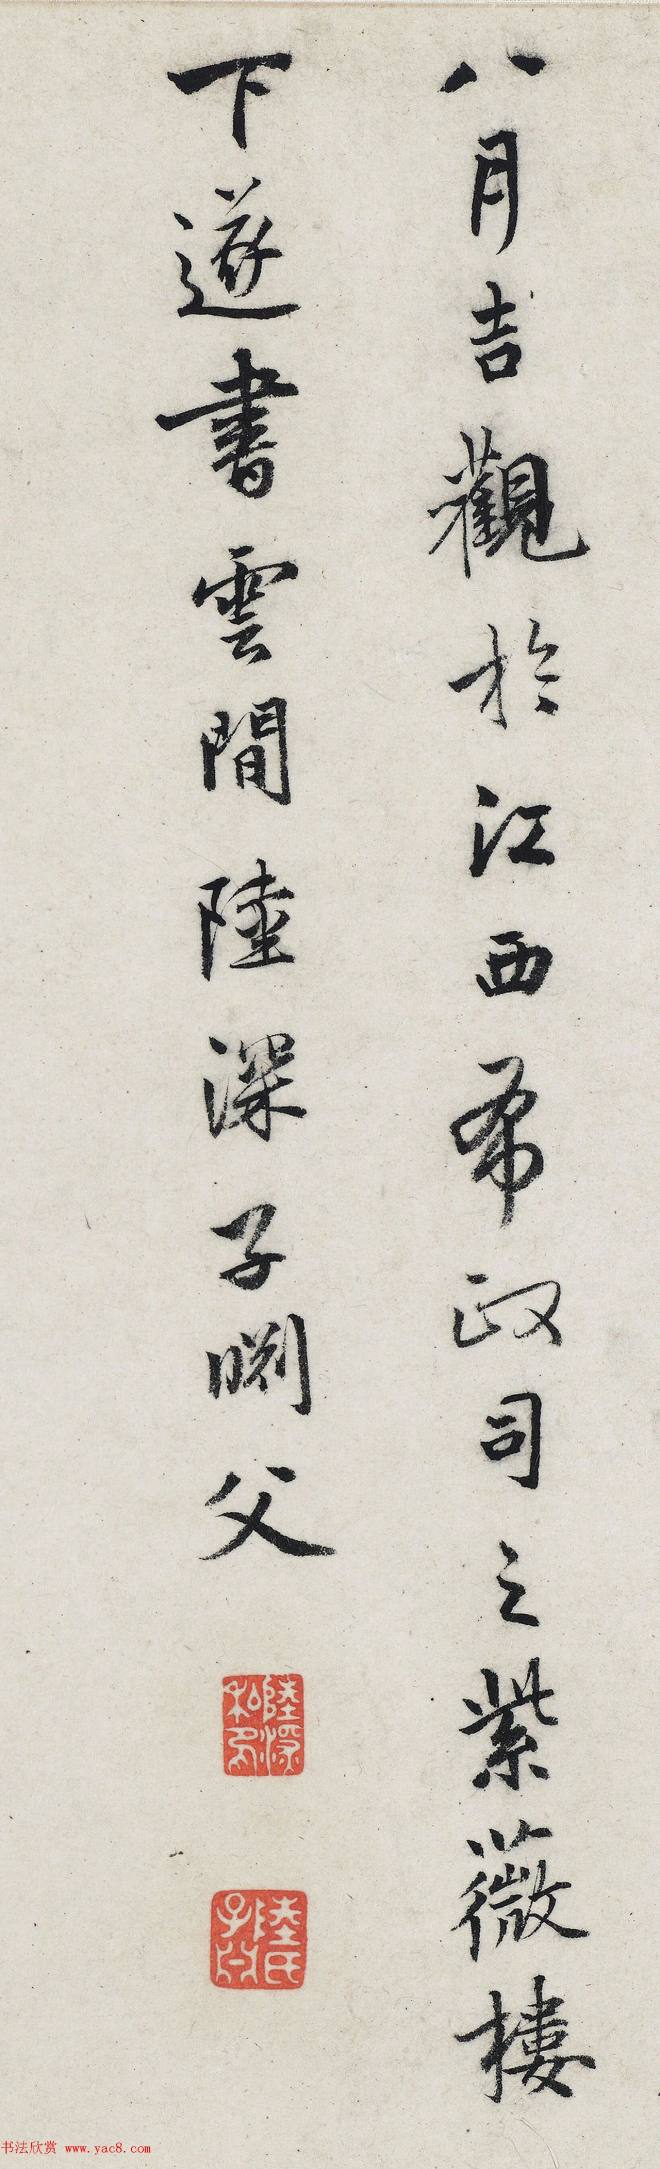 八月吉觀於江西布政司之紫薇樓
下遂書雲間陸深子淵父
陸深私印
陸氏子淵
书法欣赏 www.yac8.com